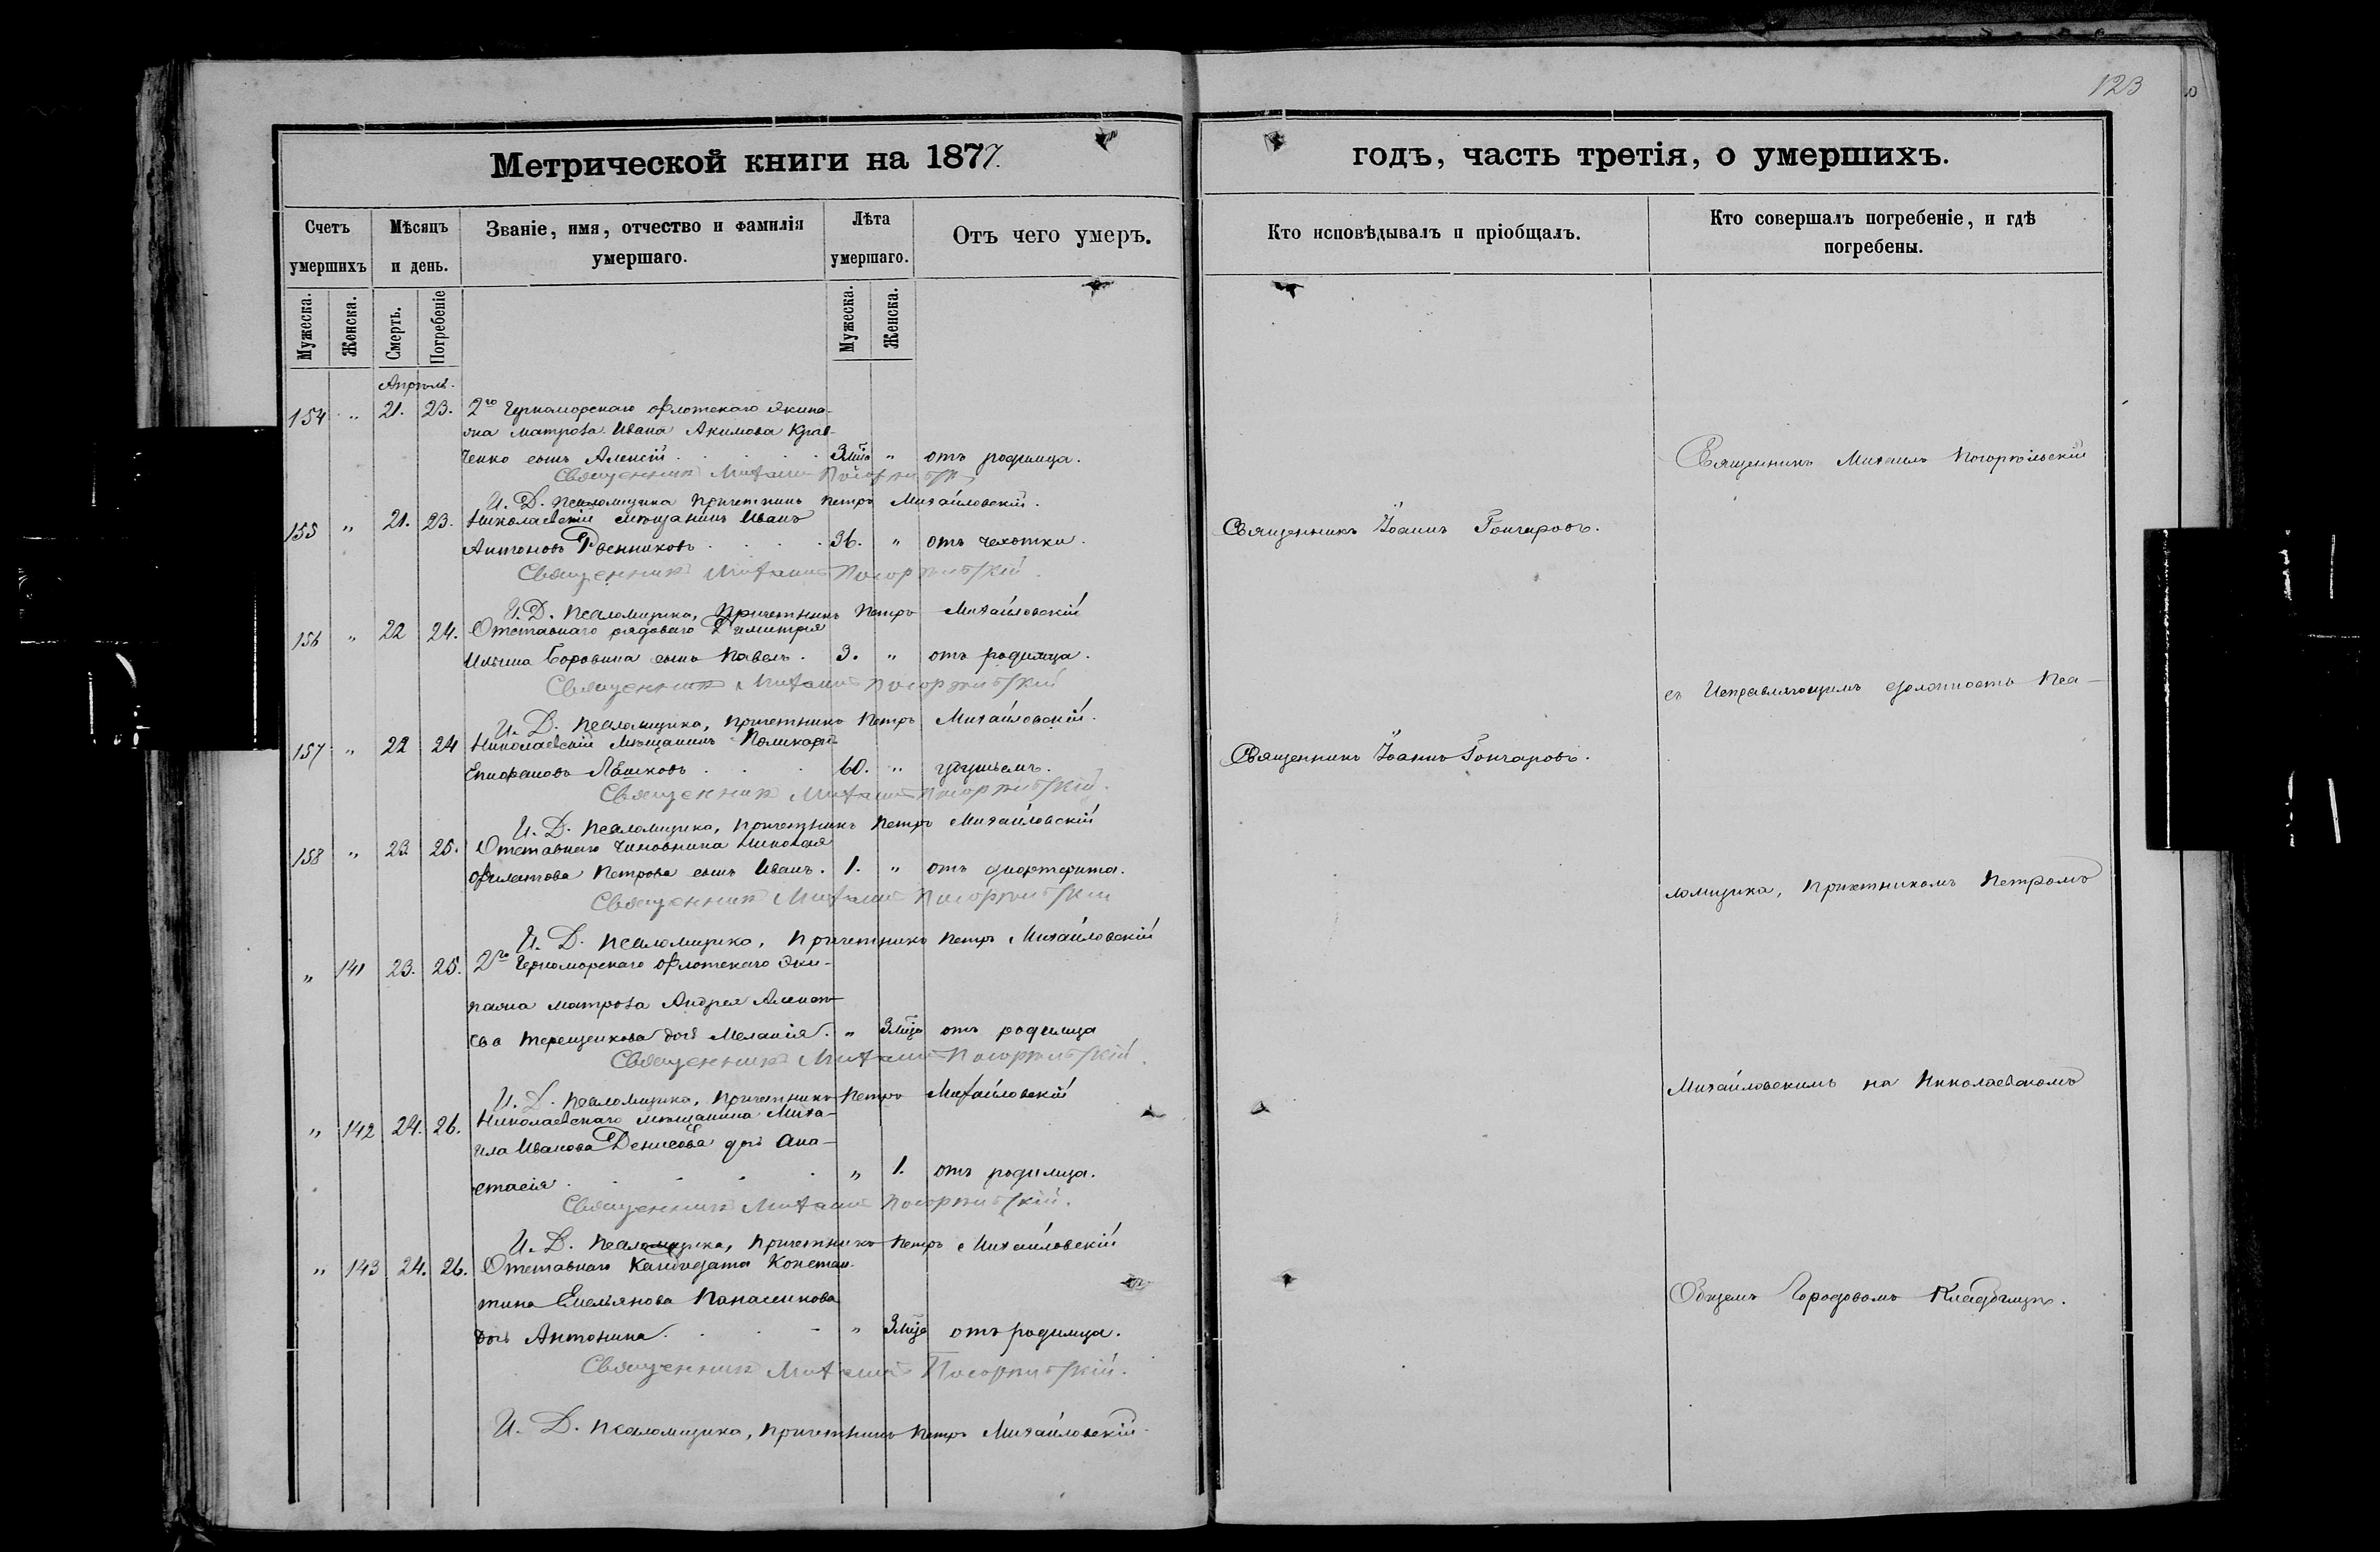 123
Метрической книги на 1877.
годъ, часть третія, о умершихъ.
Счетъ умершихъ
Мѣсяцъ и день.
Званіе, имя, отчество и фамилія умершаго.
Лѣта умершаго.
Отъ чего умеръ.
Кто исповѣдывалъ и пріобщалъ.
Кто совершалъ погребеніе, и гдѣ погребены.
Мужеска.
Женска.
Смерть.
Погребеніе
Мужеска.
Женска.
Апрѣль.
154 " 21. 23. 2го Черноморскаго флотскаго экипа-
жа матроза Ивана Акимова Крав-
ченко сынъ Алексій . . . 3 мца " отъ родимца.
Священникъ Михаилъ Погорѣльскій
И. Д. Псаломщика Причетникъ Петръ Михайловскій.
155 " 21. 23. Николаевскій мѣщанинъ Иванъ
Антоновъ . . . 36. " отъ чахотки.
Священникъ Іоаннъ Гончаровъ.
Священникъ Михаилъ Погорѣльскій.
И. Д. Псаломщика, Причетникъ Петръ Михайловскій
156 " 22 24. Отставнаго рядоваго Димитрія
Ильина Боровина сынъ Павелъ. 3. " отъ родимца.
Священникъ Михаилъ Погорѣльскій
И. Д. Псаломщика, Причетникъ Петръ Михайловскій.
157 " 22 24 Николаевскій Мѣщанинъ Поликарпъ
Епифановъ Лѣшковъ . . . 60. " удушьемъ.
Священникъ Іоаннъ Гончаровъ.
Священникъ Михаилъ Погорѣльскій.
И. Д. Псаломщика, Причетникъ Петръ Михайловскій
158 " 23. 25. Отставнаго Чиновника Николая
Филатова Петрова сынъ Иванъ. 1. " отъ дифтерита.
Священникъ Михаилъ Погорѣльскій
И. Д. Псаломщика, Причетникъ Петръ Михайловскій
" 141 23. 25. 2го Черноморскаго флотскаго Эки-
пажа матроза Андрея Алексѣ-
ева Терещенкова дочь Меланія. " 3 мца отъ родимца
Священникъ Михаилъ Погорѣльскій.
И. Д. Псаломщика, Причетникъ Петръ Михайловскій
" 142 24. 26. Николаевскаго мѣщанина Миха-
ила Иванова Денисова дочь Ана-
стасія . . . " 1. отъ родимца.
Священникъ Михаилъ Погорѣльскій.
И. Д. Псаломщика, Причетникъ Петръ Михайловскій
" 143 24. 26. Отставнаго Кандидата Констан-
тина Емельянова Панасенкова
дочь Антонина. . . - " 3 мца отъ родимца.
Священникъ Михаилъ Погорѣльскій.
И. Д. Псаломщика, Причетникъ Петръ Михайловскій.
Священникъ Михаилъ Погорѣльскій
съ Исправляющимъ должность Пса-
ломщика, Причетникомъ Петромъ
Михайловскимъ на Николаевскомъ
Общемъ Городовомъ Кладбищѣ.